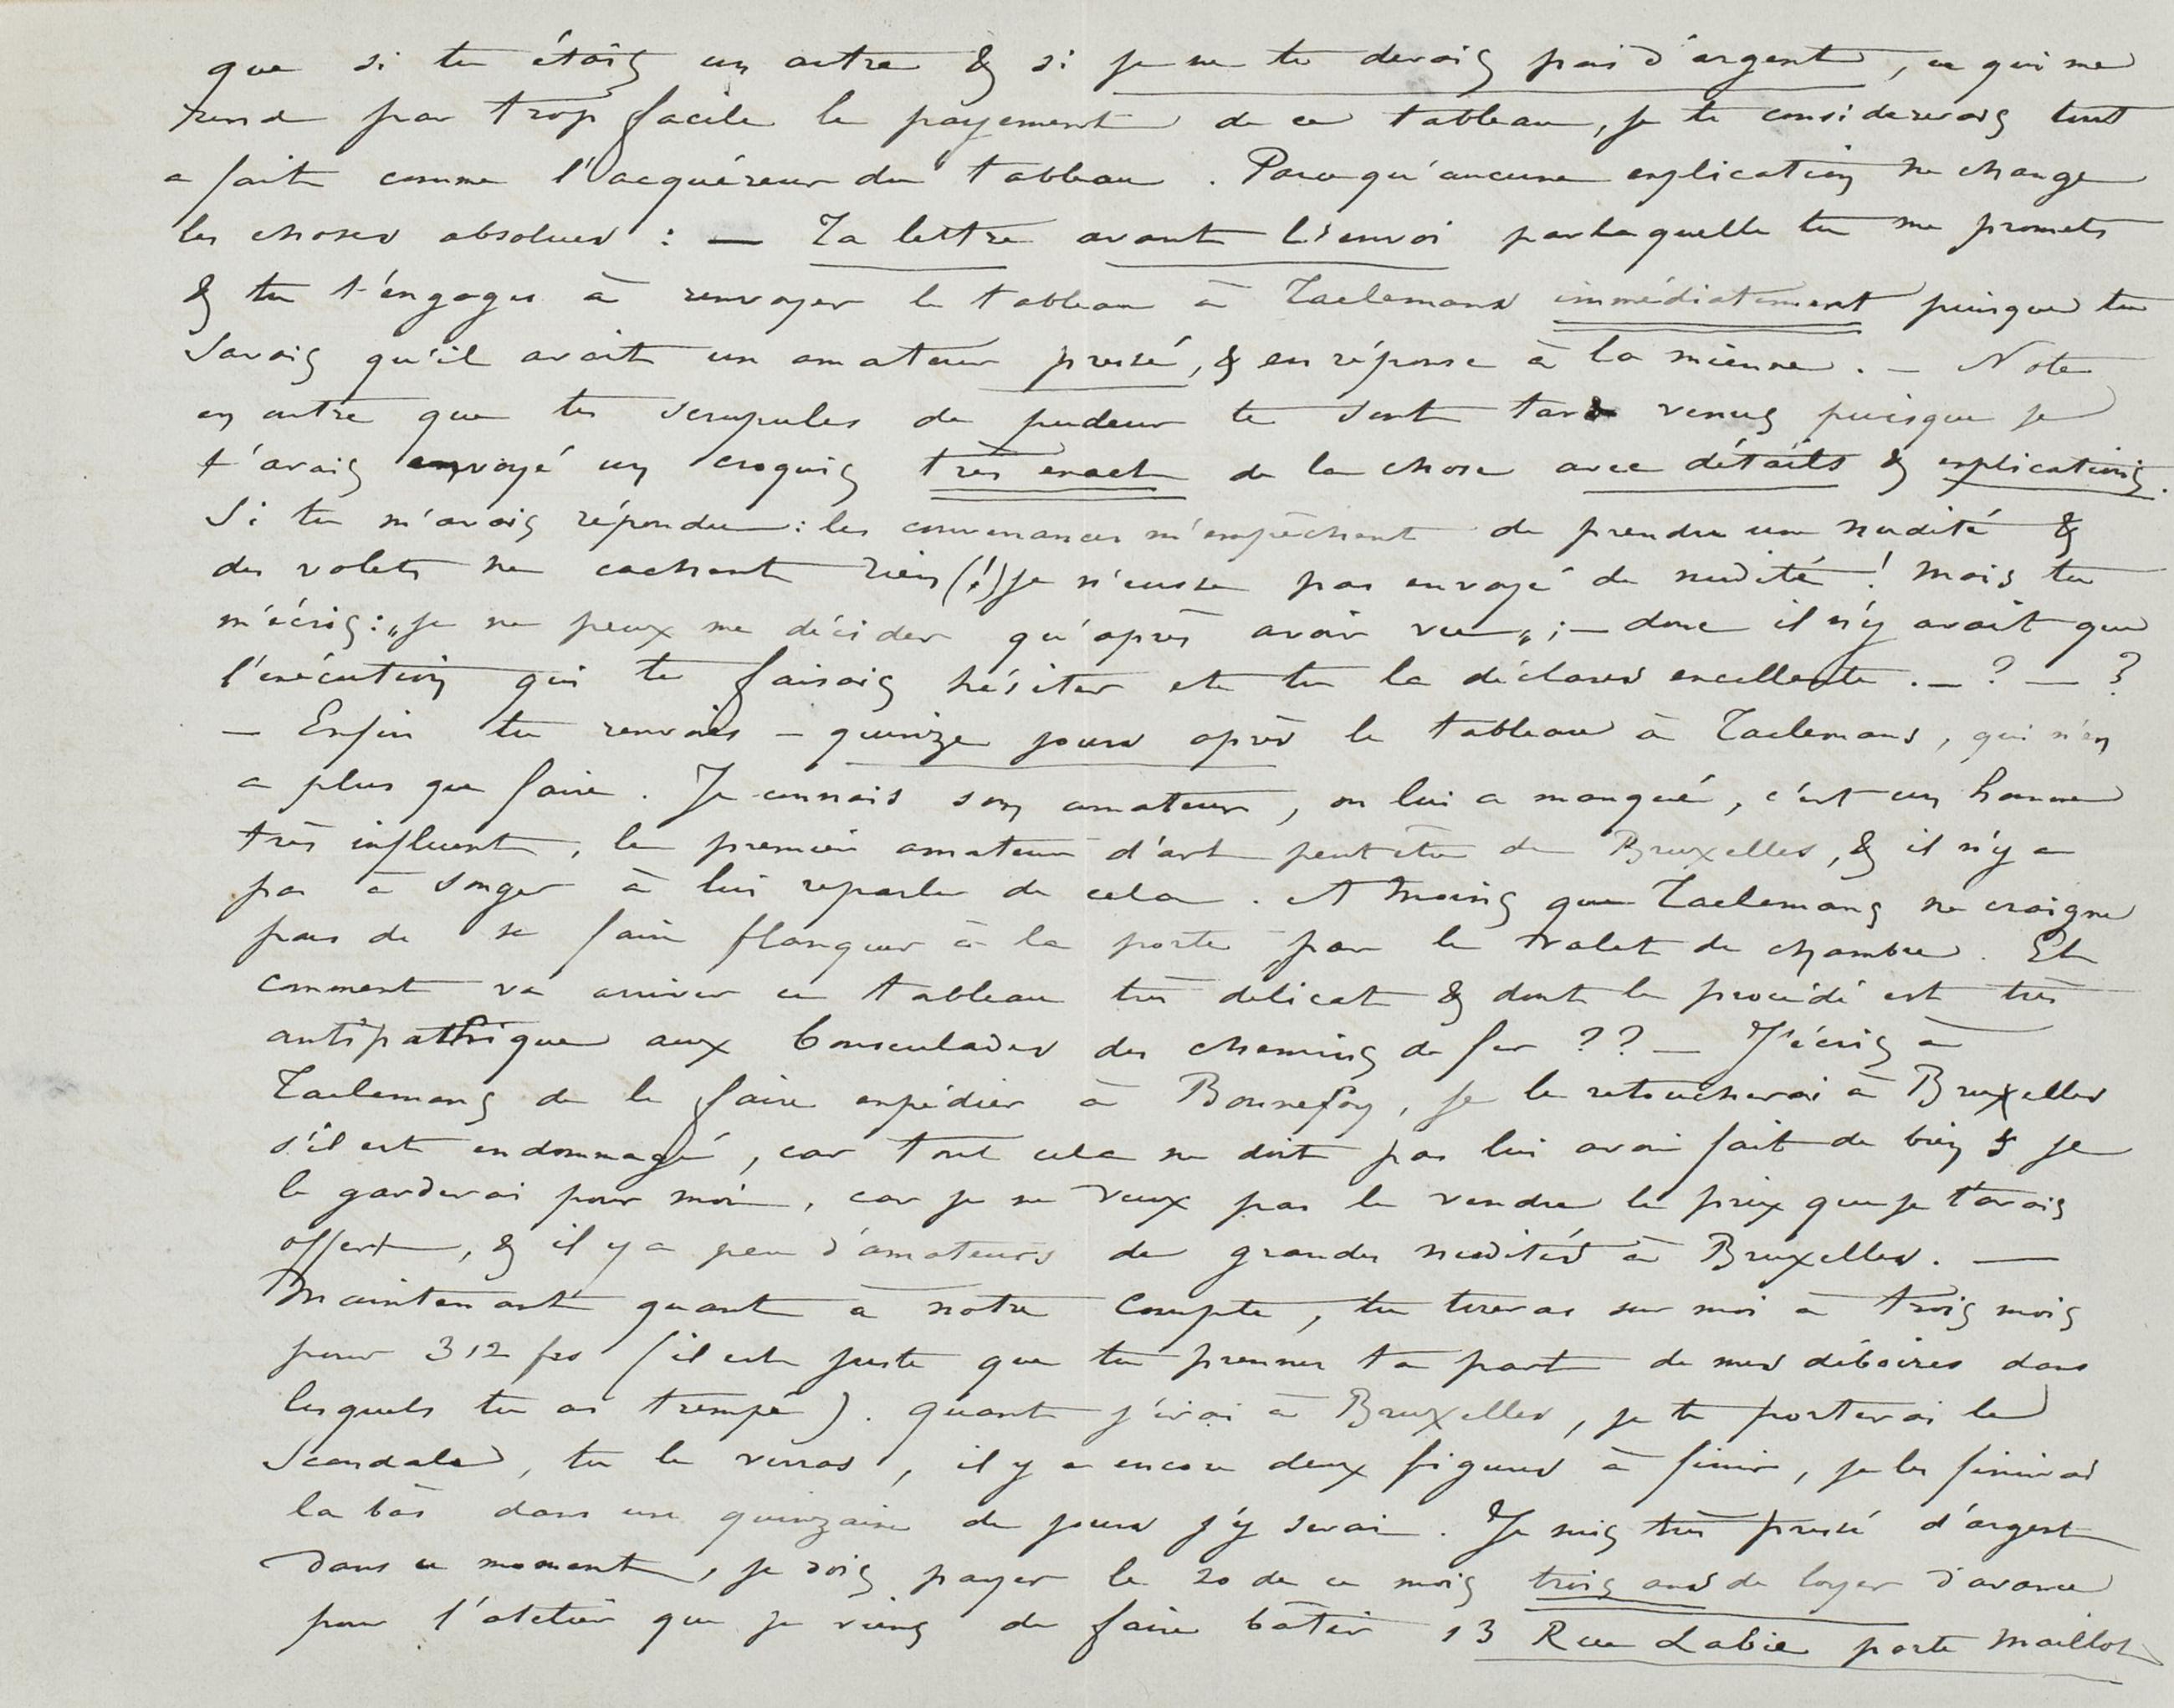 que si tu étais un autre & si je ne te devais pas d'argent, ce qui me
rend par trop facile le payement de ce tableau, je te considererais tout
a fait comme l'acquéreur du tableau. Parcequ'aucune explication ne change
les choses absolues : — Ta lettre avant l'envoi par laquelle tu me promets
& tu t'engages à renvoyer le tableau à Taelemans immédiatement puisque tu
savais qu'il avait un amateur pressé, & en réponse à la mienne. — Note
en outre que tes scrupules de pudeur te sont tard venus puisque je
t'avais envoyé un croquis très exact de la chose avec détails & explications.
Si tu m'avais répondu : les convenances m'empêchent de prendre une nudité &
des volets ne cachent rien (!) je n'eusse pas envoyé de nudité ! mais tu
m'écris : „je ne peux me décider qu'après avoir vu„ ; — donc il n'y avait que
l'exécution qui te faisais hésiter et tu la déclares excellente. — ? — ?
— Enfin tu renvoies — quinze jours après le tableau à Taelemans, qui n'en
a plus que faire. Je connais son amateur, on lui a manqué, c'est un homme
très influent, le premier amateur d'art peut être de Bruxelles, & il n'y a
pas à songer à lui reparler de cela. A moins que Taelemans ne craigne
pas de se faire flanquer à la porte par le valet de chambre. Et
comment va arriver ce tableau très delicat & dont le procédé est très
antipathique aux bousculades des chemins de fer ?? — J'écris à
Taelemans de le faire expédier à Bonnefoy, je le retoucherai à Bruxelles
s'il est endommagé, car tout cela ne doit pas lui avoir fait de bien & je
le garderai pour moi, car je ne veux pas le vendre le prix que je t'avais
offert, & il y a peu d'amateurs de grandes nudités à Bruxelles. —
Maintenant quant à notre compte, tu tireras sur moi à trois mois
pour 312 frs (il est juste que tu prennes ta part de mes déboires dans
lesquels tu as trempé). Quant j'irai à Bruxelles, je te porterai le
Scandale, tu le verras, il y a encore deux figures à finir, je les finirai
la bas dans une quinzaine de jours j'y serai. Je suis très pressé d'argent
dans ce moment, je dois payer le 20 de ce mois trois ans de loyer d'avance
pour l'atelier que je viens de faire bâtir 13 Rue Labie porte Maillot